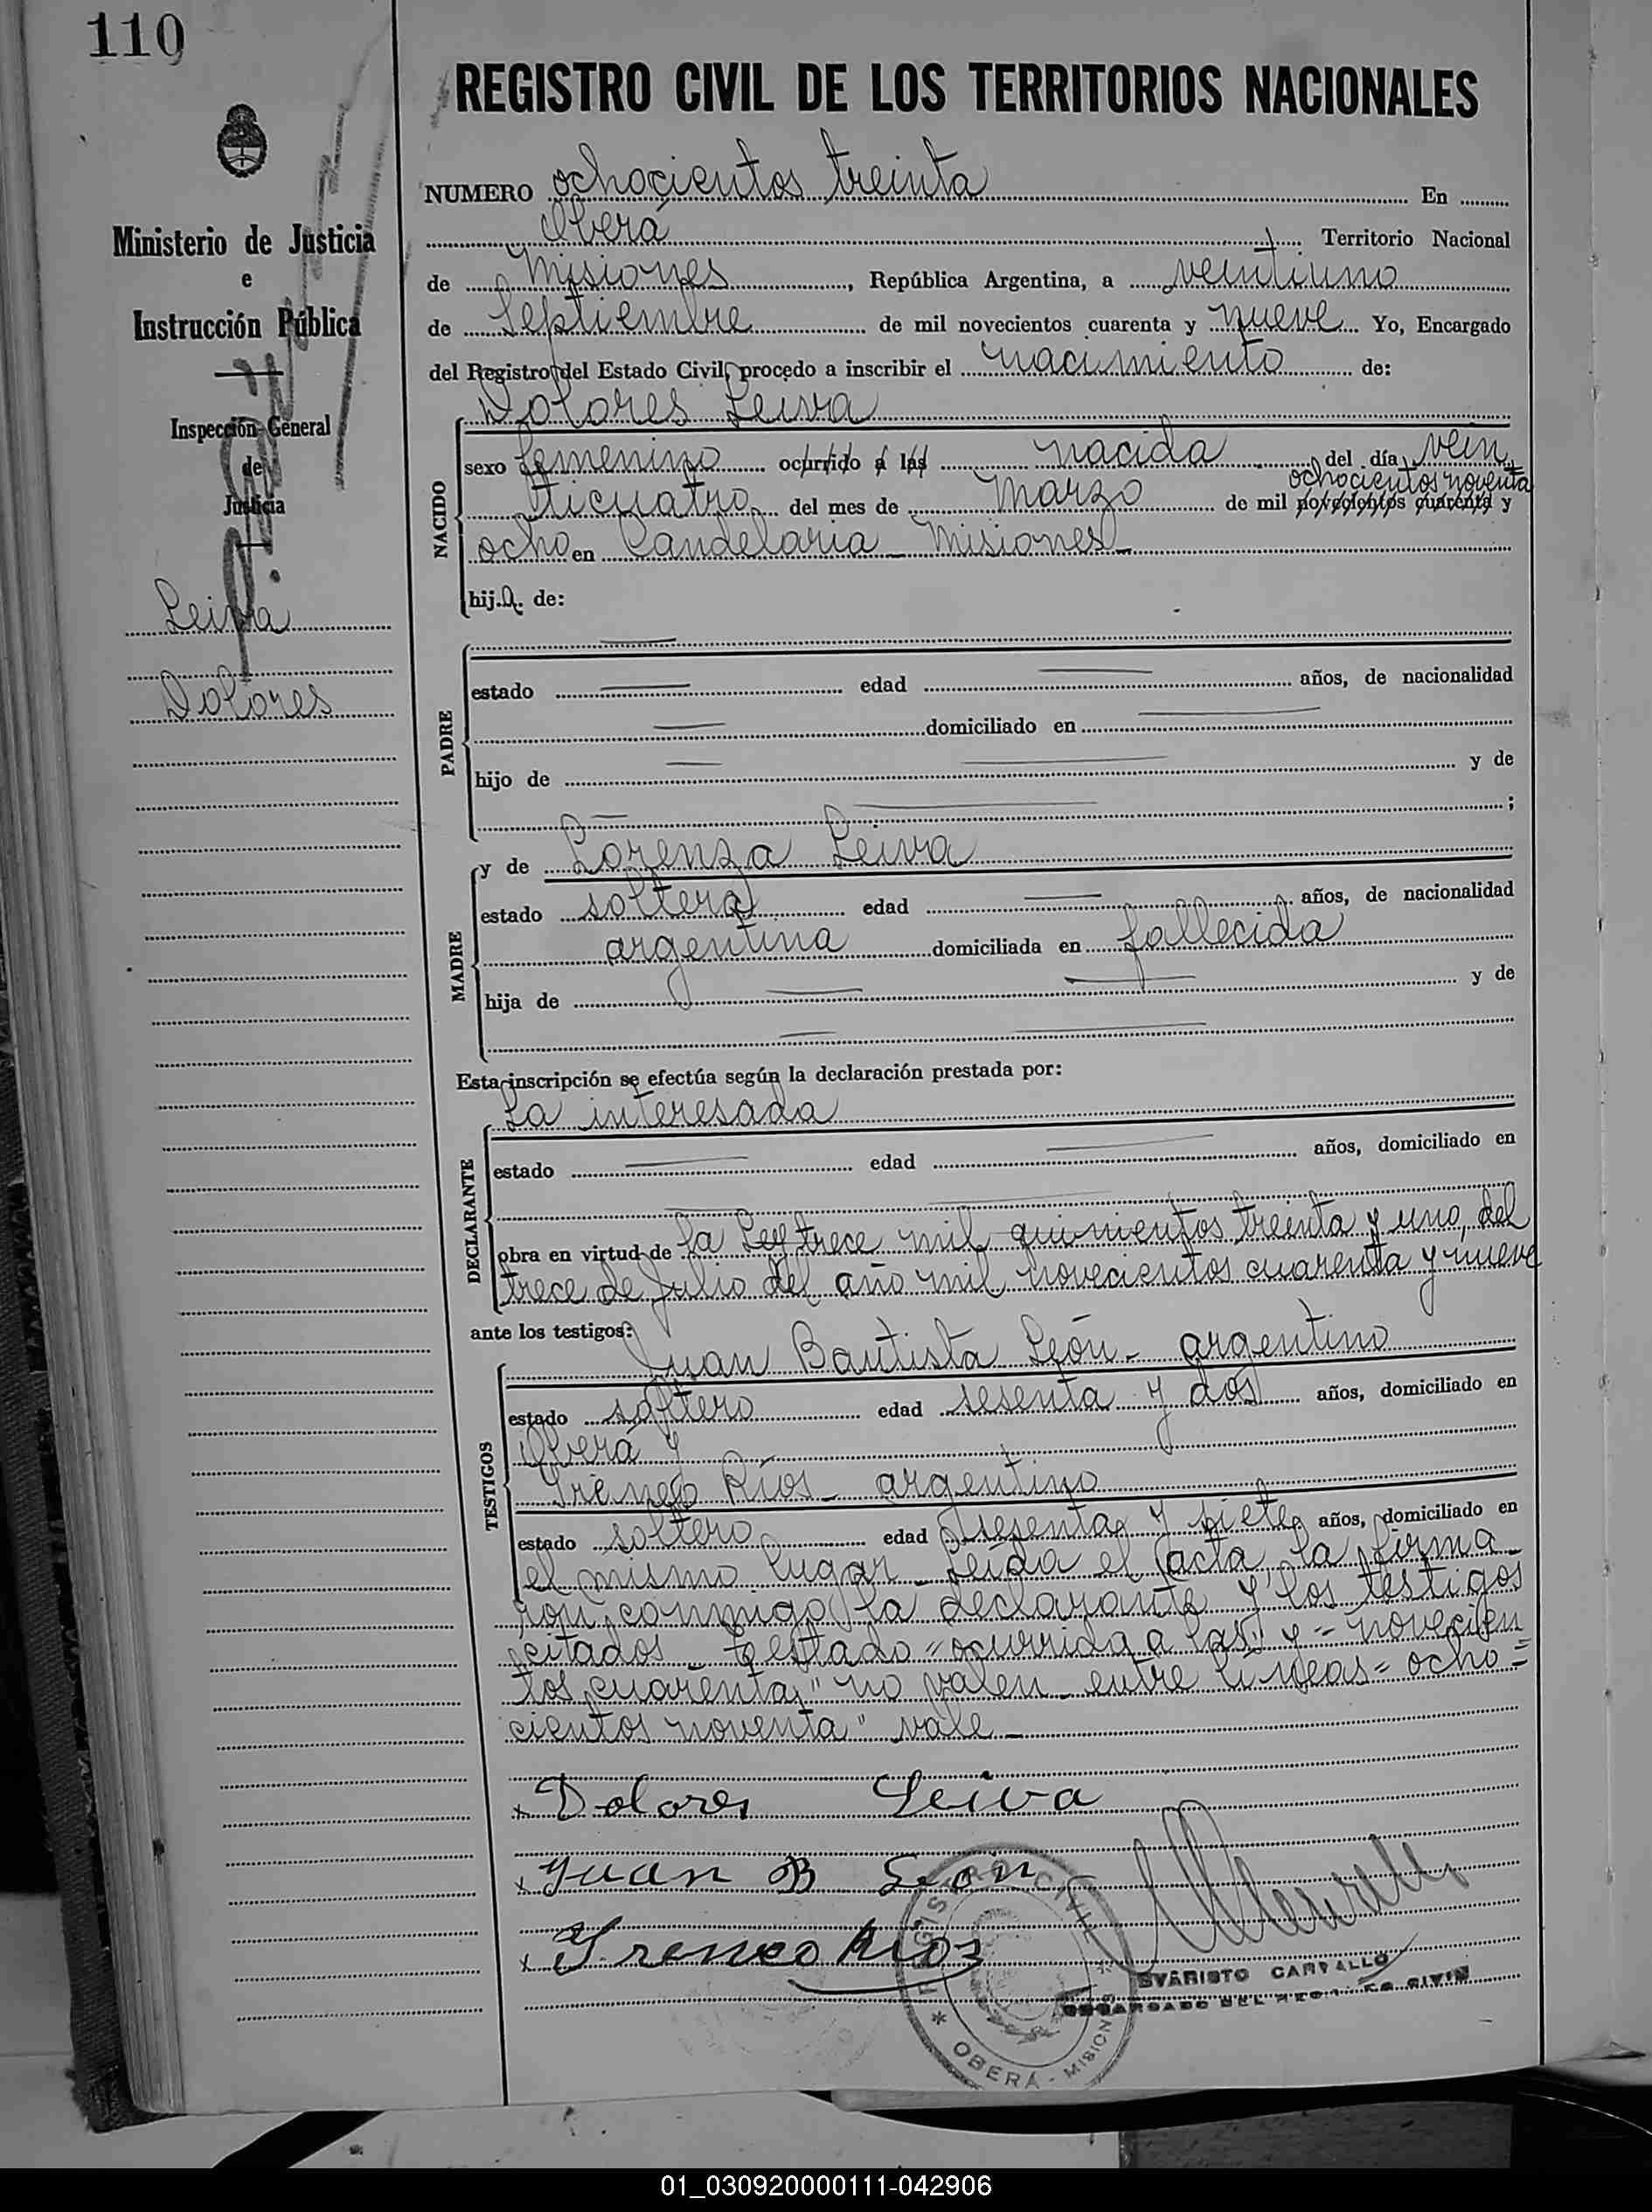 110
REGISTRO CIVIL DE LOS TERRITORIOS NACIONALES
Ministerio de Justicia
e
Instrucción Pública
Inspección General
de
Justicia
Leiva
Dolores
NUMERO ochocientos treinta En
Oberá, Territorio Nacional
de Misiones, República Argentina, a veintiuno
de Septiembre de mil novecientos cuarenta y nueve Yo, Encargado
del Registro del Estado Civil, procedo a inscribir el nacimiento de:
Dolores Leiva
NACIDO
sexo femenino ocurrido a las nacida del día vein
ochocientos noventa
ticuatro del mes de Marzo de mil novecientos cuarenta y
ocho en Candelaria - Misiones -
hija de:
PADRE
estado edad años, de nacionalidad
domiciliado en
hijo de y de
;
MADRE
y de Lorenza Leiva
estado soltera edad años, de nacionalidad
argentina domiciliada en fallecida
hija de y de
Esta inscripción se efectúa según la declaración prestada por:
La interesada
DECLARANTE
estado edad años, domiciliado en
obra en virtud de la Ley trece mil quinientos treinta y uno, del
trece de Julio del año mil novecientos cuarenta y nueve
ante los testigos:
TESTIGOS
Juan Bautista León - argentino
estado soltero edad sesenta y dos años, domiciliado en
Oberá y
Ireneo Ríos - argentino
estado soltero edad sesenta y siete años, domiciliado en
el mismo lugar - Leida el acta, la firma-
ron conmigo la declarante y los testigos
citados - Testado = ocurrida a las y = novecien
tos cuarenta" no valen - entre lineas = ocho=
cientos noventa" vale -
x Dolores Leiva
x Juan B León
x Ireneo Rios
REGISTRO CIVIL
* OBERÁ - MISIONES *
EVARISTO CARVALLO
ENCARGADO DEL REGISTRO CIVIL
01_030920000111-042906